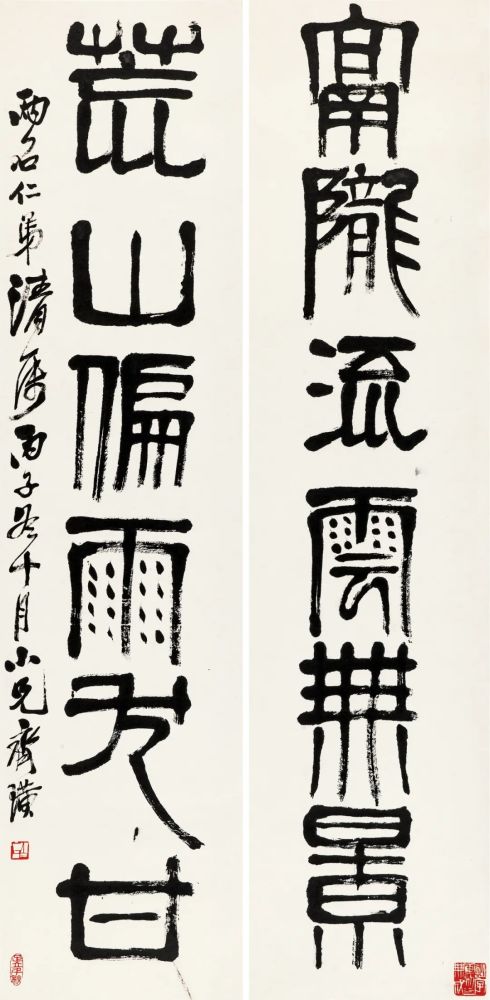 甯隴流雲無景
荒山偏雨尤甘
仁弟清屬丙子冬十月小兄齊璜